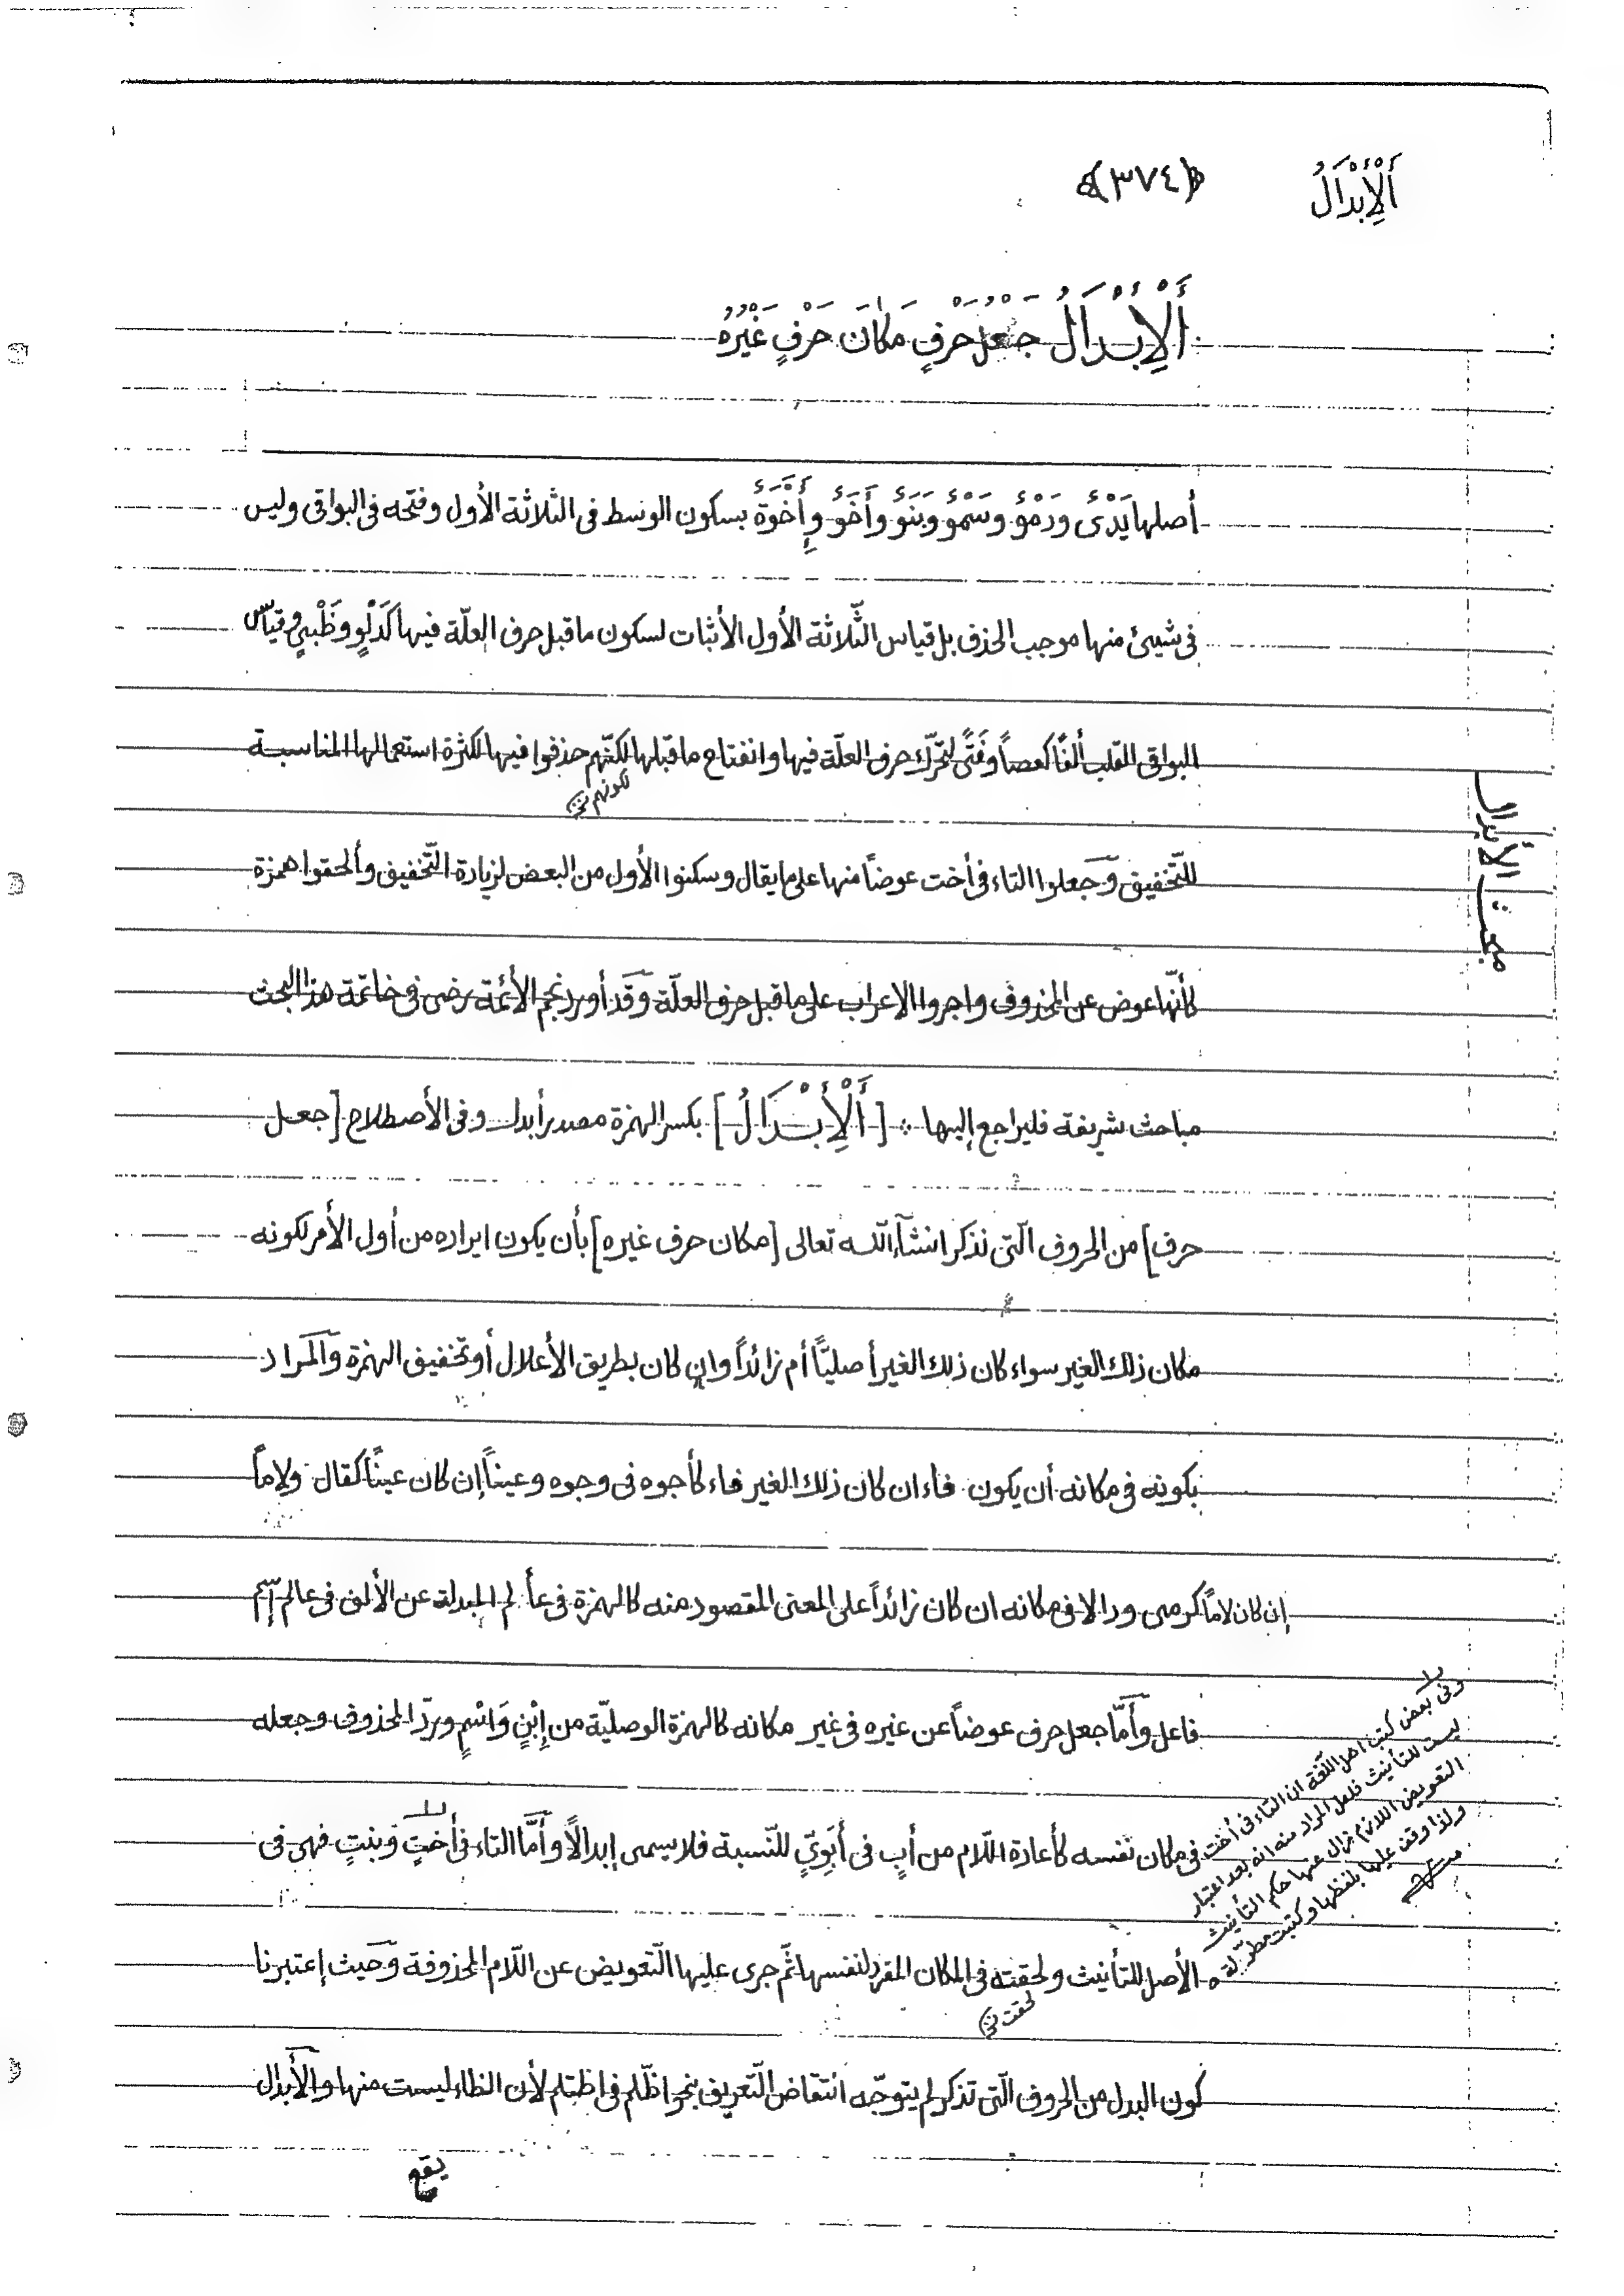 أَلْإِبْدَالُ ﴿٣٧٤﴾
أَلْإِبْدَالُ جَعْلُ حَرْفٍ مَكَانَ حَرْفٍ غَيْرُهُ
أصلها يَدْىٌ ودَمْوٌ وسَمْوٌ وبَنَوٌ وأَخَوٌ وإِخَوَةٌ بسكون الوسط فى الثلاثة الأول وفتحه فى البواقى وليس
فى شيئ منها موجب الحذف بل قياس الثّلاثة الأول الأثبات لسكون ماقبل حرف العلّة فيها كَدَلْوٍ وظَبْىٍ وقياس
البواقى القلب ألفًا كعصاً وفَتًى لتحرّك حرف العلّة فيها وانفتاح ماقبلها لكنّهم حذفوا فيها لكثرة استعمالها المناسبة
لكونهم
للتّخفيف وجعلوا التاء فى أخت عوضاً منها على ما يقال وسكنوا الأول من البعض لزيادة التّخفيف وألحقوا همزة
كأنّها عوض عن المحذوف واجروا الاعراب على ماقبل حرف العلّة وقد أورد نجم الأئمة رضى فى خاتمة هذا البحث
مباحث شريفة فليراجع إليها ∴ [أَلْإِبْدَالُ] بكسر الهمزة مصدر أبدل وفى الأصطلاح [جعل
حرف] من الحروف الّتى نذكر انشآء الله تعالى [مكان حرف غيره] بأن يكون ايراده من أول الأمر لكونه
مكان ذلك الغير سواء كان ذلك الغير أصليًّا أم زائداً وان كان بطريق الأعلال أو تخفيف الهمزة والمراد
بكونه فى مكانه أن يكون فاء ان كان ذلك الغير فاء كأجوه فى وجوه وعيناً إن كان عينًا كقال ولاماً
إن كان لاماً كرمى ودالا فى مكانه ان كان زائداً على المعنى المقصود منه كالهمزة فى عألم المبدلة عن الألف فى عالم إسم
فاعل وأمّا جعل حرف عوضاً عن غيره فى غير مكانه كالهمزة الوصليّة من إِبْنٍ وَاسْمٍ وردّ المحذوف وجعله
فى مكان نفسه كأعادة اللّام من أبٍ فى أَبَوِىٍّ للنّسبة فلا يسمى إبدالاً وأمّا التاء فى أختٍ وبنتٍ فهى فى
الأصل للتأنيث ولحقته فى المكان المقرد لنفسها ثمّ جرى عليها التّعويض عن اللّام المحذوفة وحيث إعتبرنا
لحقت
كون البدل من الحروف الّتى تذكر لم يتوجّه انتقاض التّعريف بنحو اظّلم فى اظتلم لأن الظاء ليست منها والأبدال
يقع
مبحث الأبدال
وفى بعض كتب اهل اللّغة ان التاء فى أخت
ليست للتأنيث فلعل المراد منه انه بعد اعتبار
التعويض اللازم زال عنها حكم التأنيث
ولذا وقف عليها بلفظها وكتبت مطوّلة